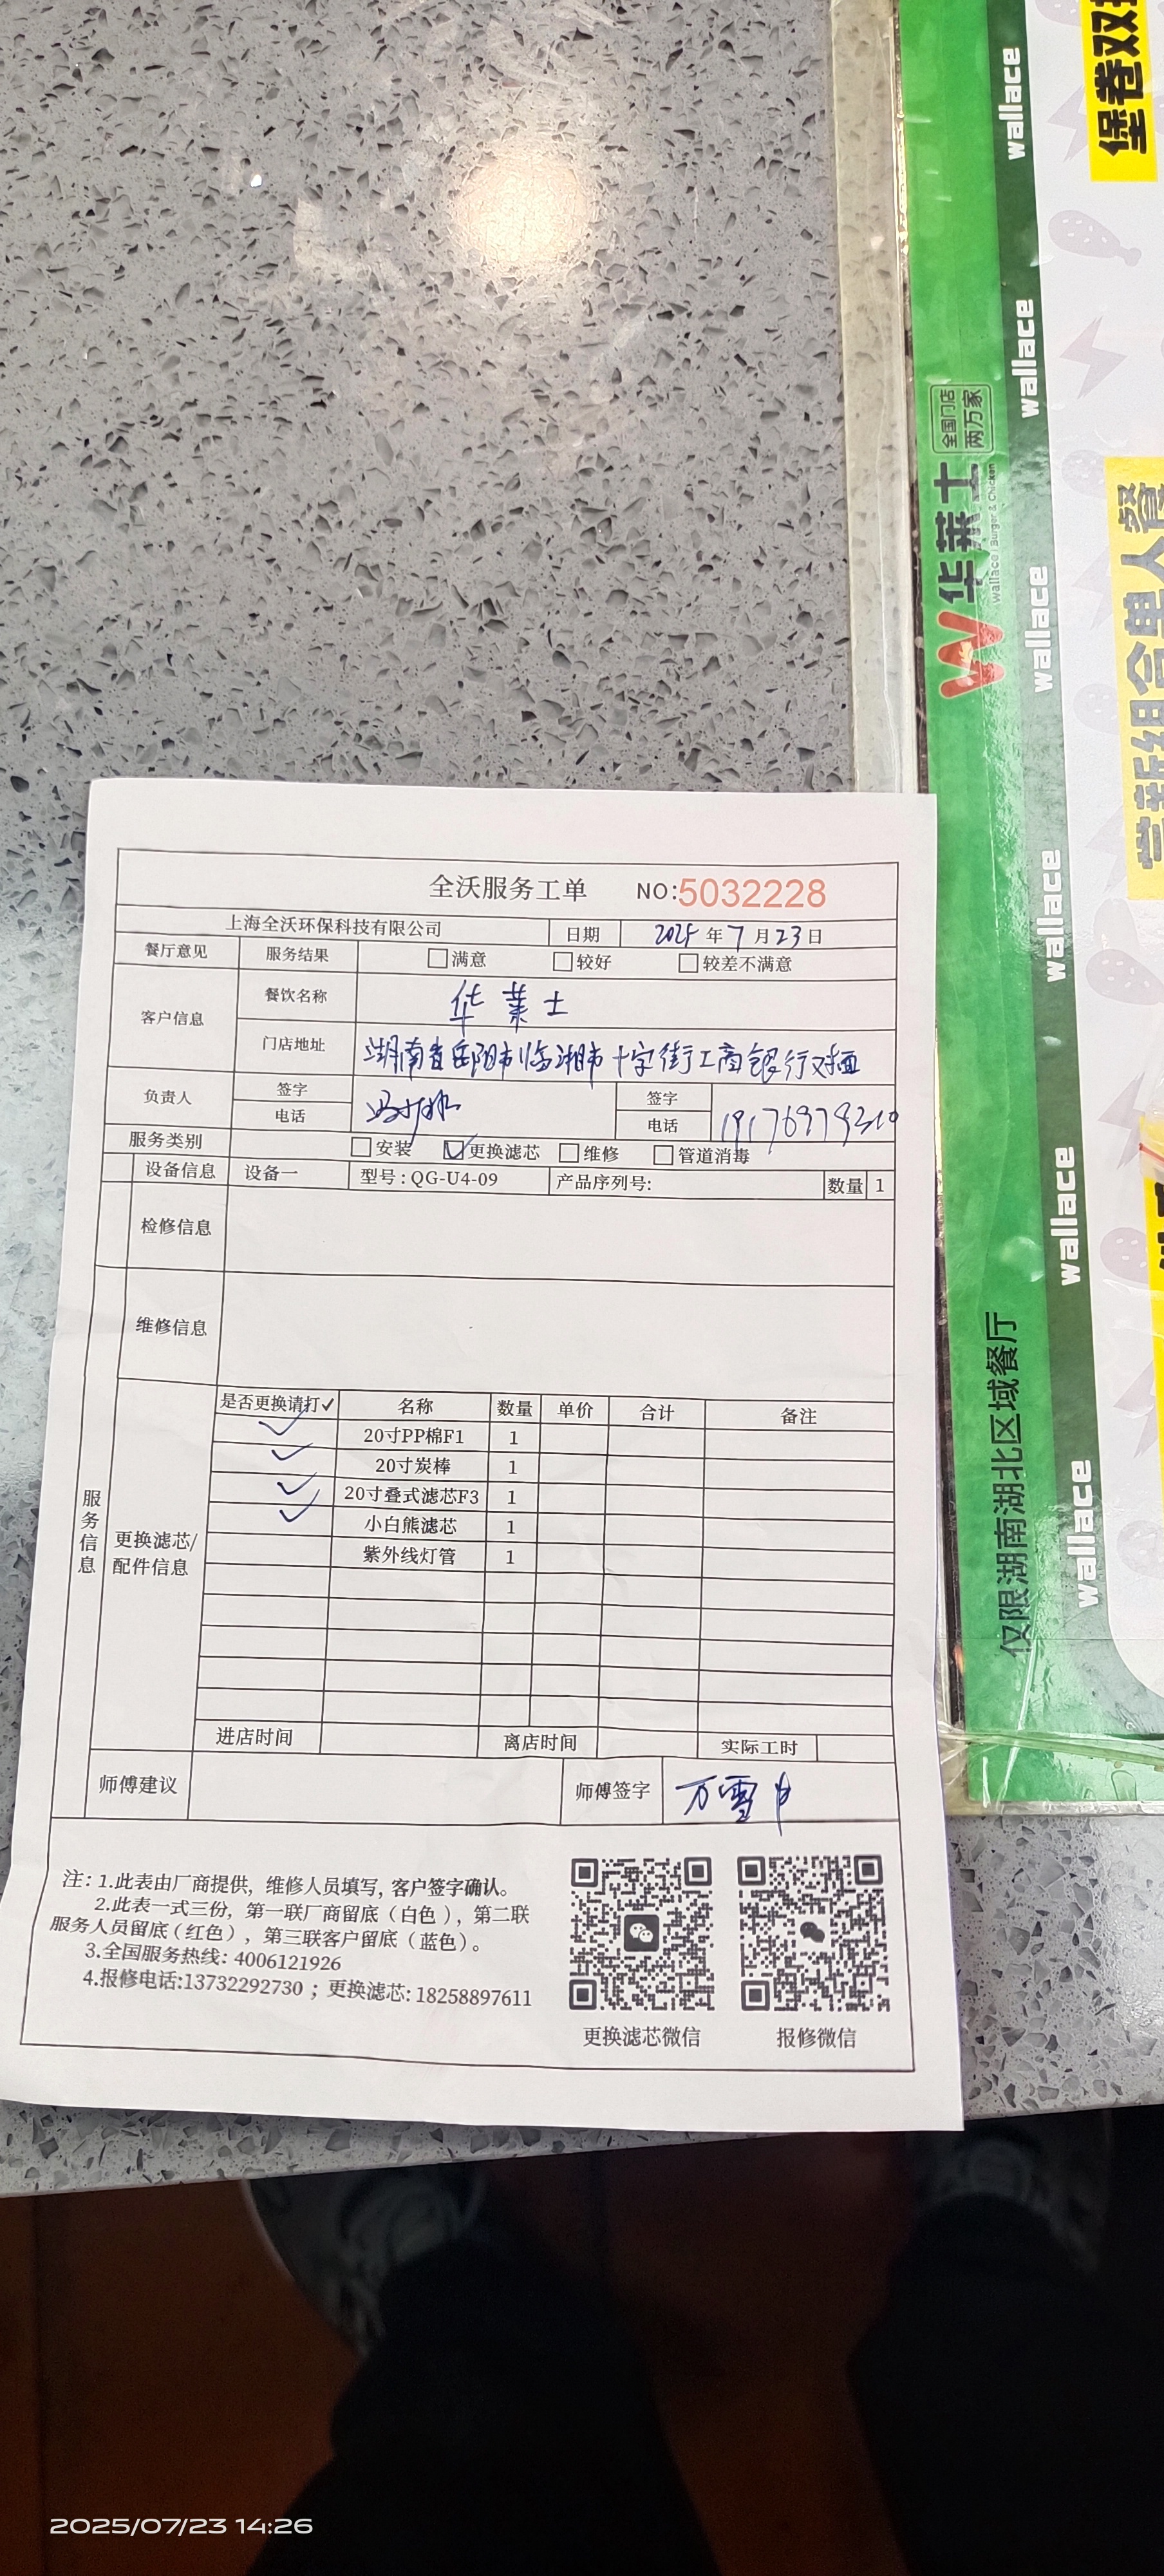 全沃服务工单 NO:5032228
上海全沃环保科技有限公司 日期 2025年7月23日
餐厅意见 服务结果 □满意 □较好 □较差不满意
客户信息 餐饮名称 华莱士
门店地址 湖南省岳阳市临湘市十字街工商银行对面
负责人 签字 签字
电话 电话
服务类别 □安装 ☑更换滤芯 □维修 □管道消毒
设备信息 设备一 型号:QG-U4-09 产品序列号: 数量 1
检修信息
维修信息
服务信息
更换滤芯/配件信息
是否更换请打✓ 名称 数量 单价 合计 备注
✓ 20寸PP棉F1 1
✓ 20寸炭棒 1
✓ 20寸叠式滤芯F3 1
✓ 小白熊滤芯 1
紫外线灯管 1
进店时间 离店时间 实际工时
师傅建议 师傅签字 万雪
注:1.此表由厂商提供,维修人员填写,客户签字确认。
2.此表一式三份,第一联厂商留底(白色),第二联
服务人员留底(红色),第三联客户留底(蓝色)。
3.全国服务热线:4006121926
4.报修电话:13732292730;更换滤芯:18258897611
更换滤芯微信 报修微信
W华莱士
wallace | Burger & Chicken
全国门店
两万家
仅限湖南湖北区域餐厅
wallace
wallace
wallace
wallace
wallace
wallace
堡卷双
尝新组合单人餐
2025/07/23 14:26